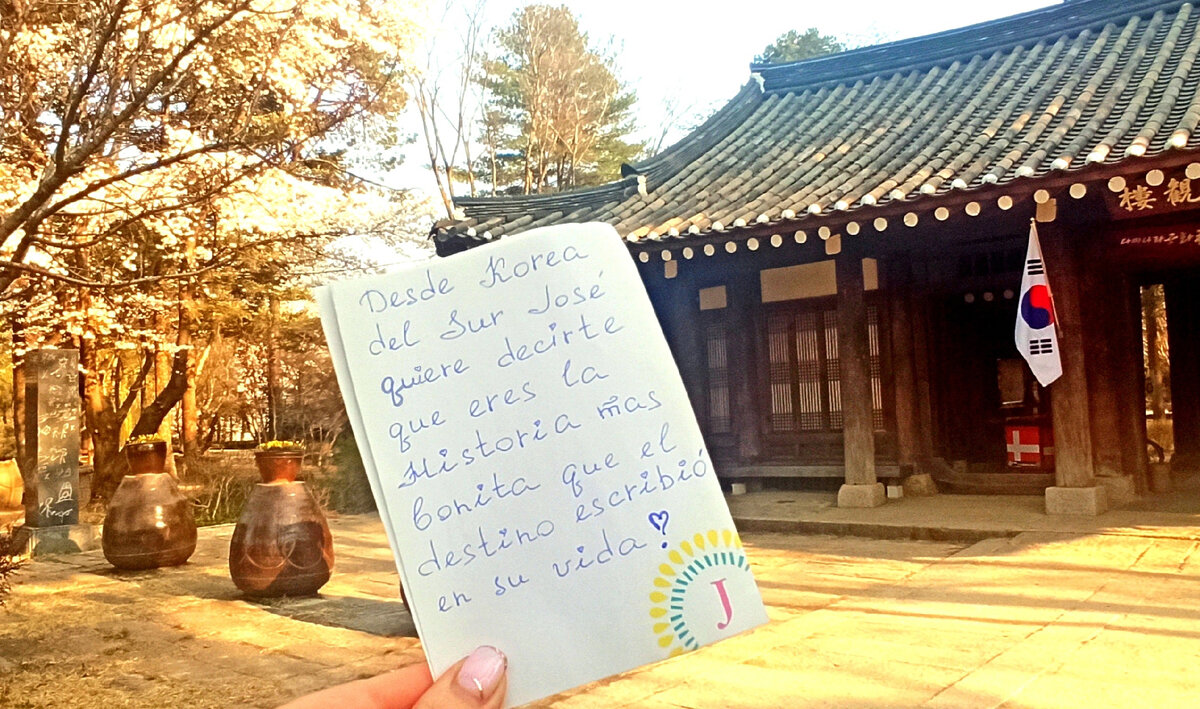 Desde Korea
del Sur José
quiere decirte
que eres la
Historia mas
bonita que el
destino escribió
en su vida
J
觀樓